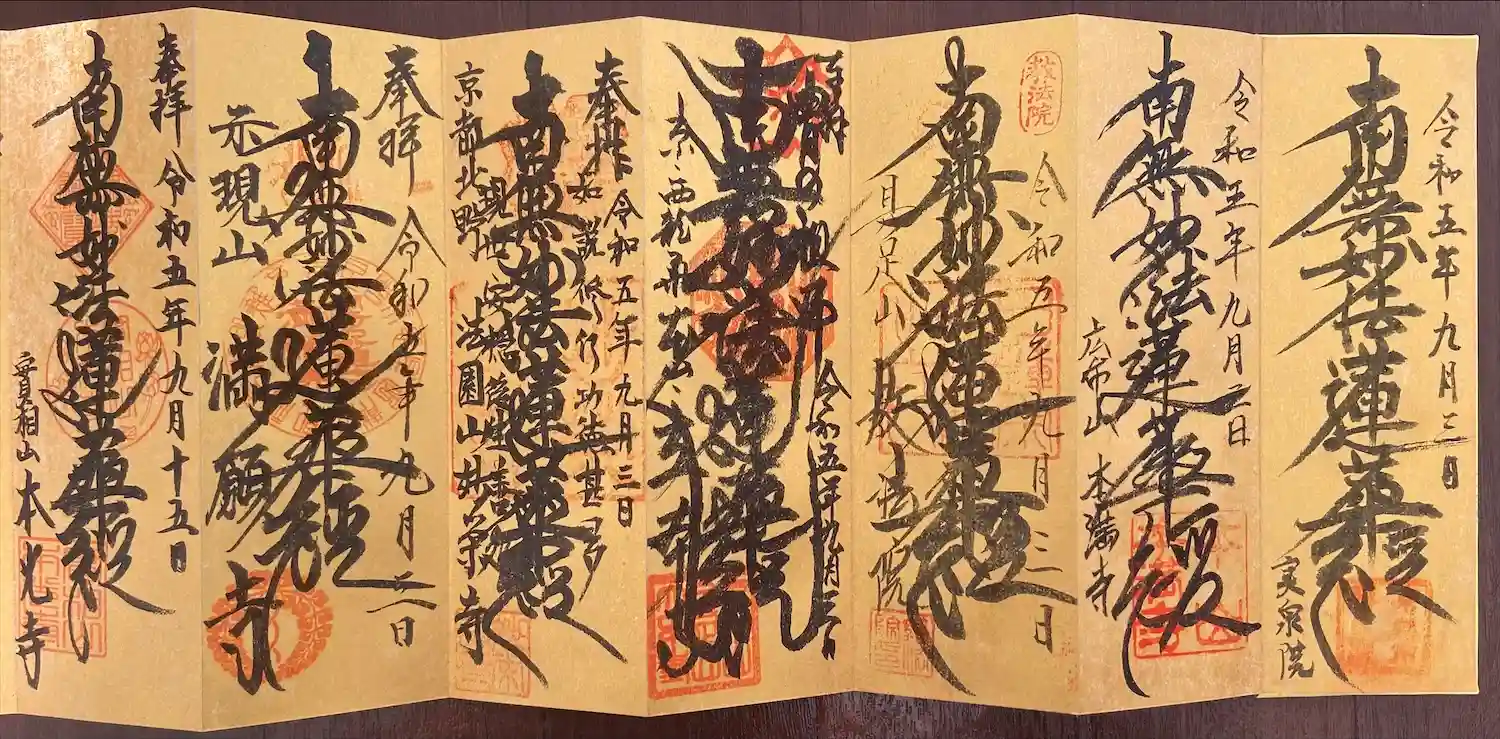 令和五年九月三日
南無妙法蓮華経
実泉院
令和五年九月二日
南無妙法蓮華経
広布山
本満寺
教法院
令和五年九月三日
南無妙法蓮華経
具足山
教法院
令和五年九月三日
南無妙法蓮華経
奉拝
令和五年九月三日
如説修行功徳甚多
南無妙法蓮華経
現世安穏後生善処
京都北野
法園山
奉拝
令和五年九月二日
南無妙法蓮華経
示現山
満願寺
奉拝
令和五年九月十五日
南無妙法蓮華経
實相山
本光寺